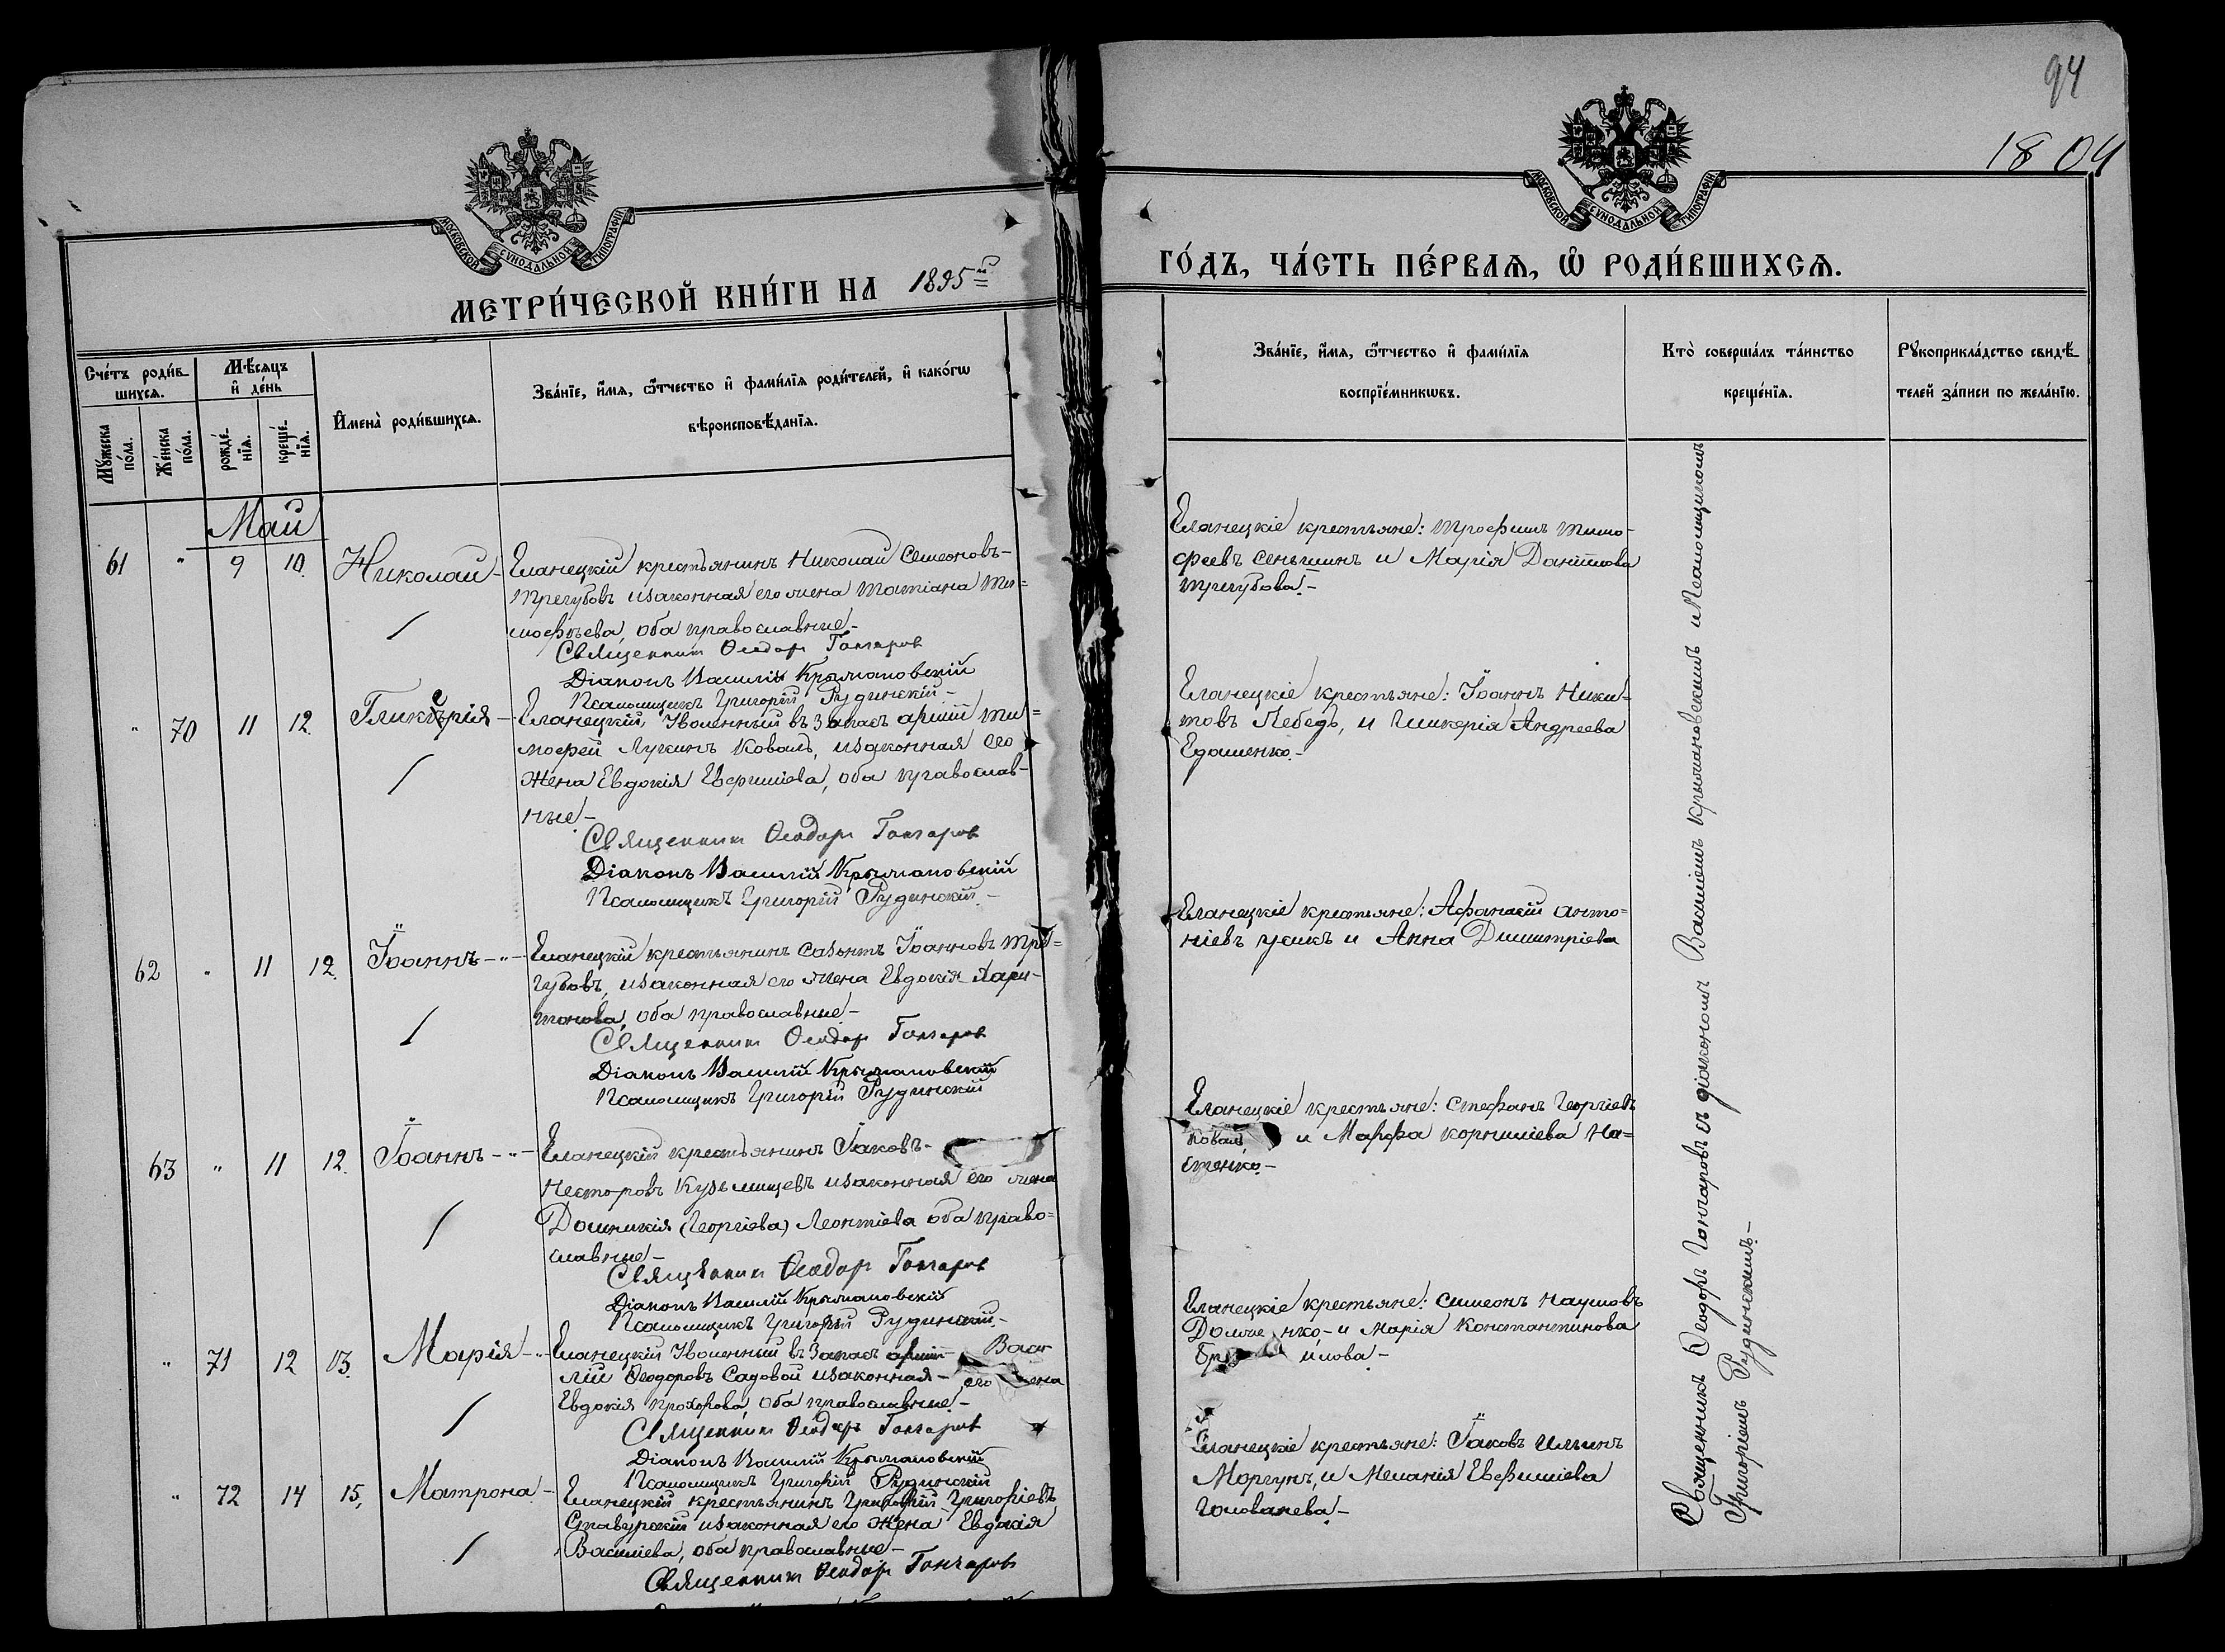 94
18 04
МОСКОВСКОЙ СѴНОДАЛЬНОЙ ТИПОГРАФІИ
МОСКОВСКОЙ СѴНОДАЛЬНОЙ ТИПОГРАФІИ
МЕТРИ́ЧЕСКОЙ КНИ́ГИ НА 1895й
ГО́ДЪ, ЧА́СТЬ ПЕ́РВАѦ, Ѡ҆ РОДИ́ВШИХСѦ.
Сче́тъ роди́в-
шихсѧ.
Мꙋ́жеска по́ла.
Же́нска по́ла.
Мѣ́сяцъ
и҆ де́нь
рожде́-
нїѧ.
креще́-
нїѧ.
И҆мена̀ роди́вшихсѧ.
Зва́нїе, и҆́мѧ, ѻ҆́тчество и҆ фами́лїѧ роди́телей, и҆ како́гѡ
вѣроисповѣ́данїѧ.
Зва́нїе, и҆́мѧ, ѻ҆́тчество и҆ фами́лїѧ
воспрїе́мникѡвъ.
Кто̀ соверша́лъ та́инство
креще́нїѧ.
Рꙋкоприкла́дство свидѣ́-
телей за́писи по жела́нїю.
Май
61 " 9 10. Николай - Еланецкій крестьянинъ Николай Семеоновъ-
Трегубовъ изаконная его жена Татіана Ти-
мофѣева, оба православные-
Священник Ѳеодор Гончаров
Діаконъ Василій Крыжановскій
Псаломщикъ Григорій Рудинскій-
Еланецкіе крестьяне: Трофимъ Тимо-
феевъ Сеньшинъ и Марія Даніилова
Трегубова.-
" 70 11 12. Гликерія - Еланецкій Уволенный въ Запасъ арміи Ти-
мофей Лукинъ Коваль, изаконная его
жена Евдокія Евфиміева, оба православ-
ные-
Священник Ѳеодор Гончаров
Діаконъ Василій Крыжановскій
Псаломщикъ Григорій Рудинскій.-
Еланецкіе крестьяне: Іоаннъ Ники-
товъ Лебедь, и Гликерія Андреева
Едошенко.-
62 " 11 12. Іоаннъ - " - Еланецкій крестьянинъ Созонтъ Іоанновъ Тре-
губовъ, изаконная его жена Евдокія Хари-
тонова, оба православные-
Священник Ѳеодор Гончаров
Діаконъ Василій Крыжановскій
Псаломщикъ Григорій Рудинскій
Еланецкіе крестьяне: Афанасій Анто-
ніевъ и Анна Димитріева
63 " 11 12. Іоаннъ - " - Еланецкій крестьянинъ Іаковъ-
Несторовъ изаконная его жена
Домникія (Георгіева) Леонтіева оба право-
славные-
Священник Ѳеодор Гончаров
Діаконъ Василій Крыжановскій
Псаломщикъ Григорій Рудинскій.-
Еланецкіе крестьяне: Стефанъ Георгіевъ
Коваль и Марфа Корниліева На-
стенко.-
" 71 12 13. Марія - " - Еланецкій Уволенный въ Запасъ арміи Васи
лій Ѳеодоровъ Садовой изаконная - его жена
Евдокія Прохорова, оба православные.-
Священник Ѳеодоръ Гончаров
Діаконъ Василій Крыжановскій
Псаломщикъ Григорій Рудинскій
Еланецкіе крестьяне: Симеонъ Наумовъ
и Марія Константинова
" 72 14 15, Матрона - Еланецкій крестьянинъ Григорій Григоріевъ
Ставурскій изаконная его жена Евдокія
Василіева, оба православные-
Священник Ѳеодор Гончаров
Еланецкіе крестьяне: Іаковъ Ильинъ
Моргунъ, и Меланія Евфиміева
Голованева.-
Священникъ Ѳеодоръ Гончаровъ съ діакономъ Василіемъ Крыжановскимъ и Псаломщикомъ
Григоріемъ Рудинскимъ.-